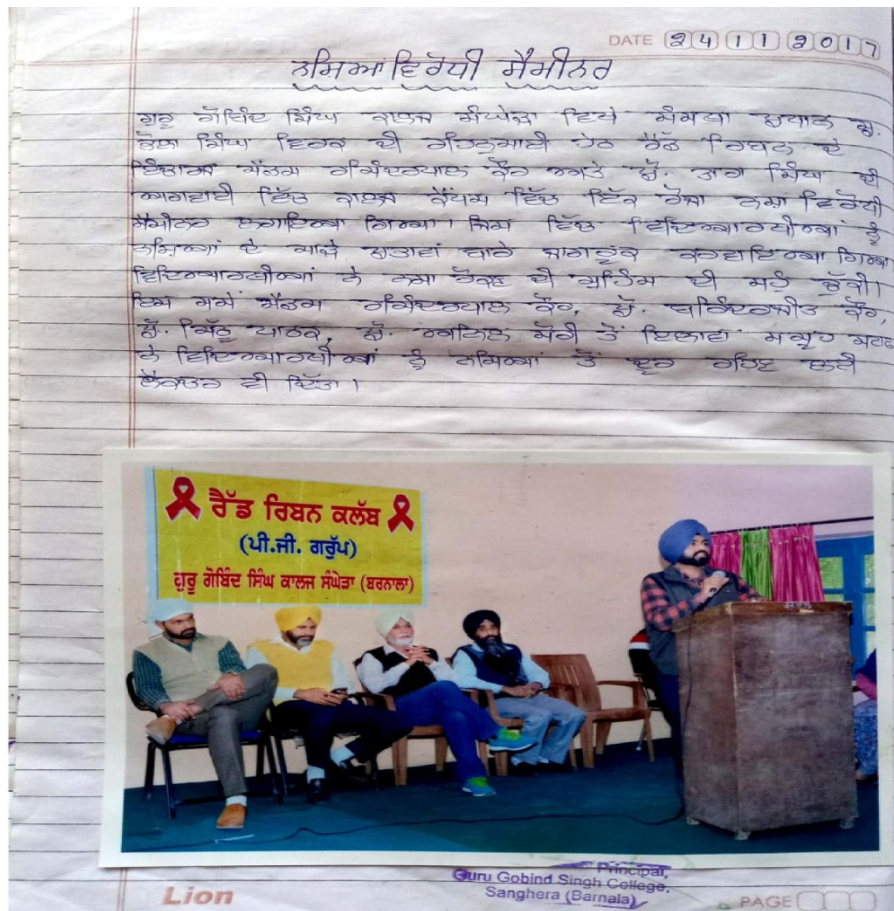 DATE 24 11 2017
ਨਸ਼ਿਆਂ ਵਿਰੋਧੀ ਸੈਮੀਨਰ
ਗੁਰੂ ਗੋਬਿੰਦ ਸਿੰਘ ਕਾਲਜ ਸੰਘੇੜਾ ਵਿਖੇ ਸੰਸਥਾ ਪ੍ਰਧਾਨ ਸ੍ਰ.
ਭੋਲਾ ਸਿੰਘ ਵਿਰਕ ਦੀ ਰਹਿਨੁਮਾਈ ਹੇਠ ਰੈੱਡ ਰਿਬਨ ਦੇ
ਇੰਚਾਰਜ ਮੈਡਮ ਹਰਿੰਦਰਪਾਲ ਕੌਰ ਅਤੇ ਪ੍ਰੋ. ਤਾਰ ਸਿੰਘ ਦੀ
ਅਗਵਾਈ ਵਿੱਚ ਕਾਲਜ ਕੈਂਪਸ ਵਿੱਚ ਇੱਕ ਰੋਜਾ ਨਸ਼ਾ ਵਿਰੋਧੀ
ਸੈਮੀਨਰ ਲਗਾਇਆ ਗਿਆ। ਜਿਸ ਵਿੱਚ ਵਿਦਿਆਰਥੀਆਂ ਨੂੰ
ਨਸ਼ਿਆਂ ਦੇ ਮਾੜੇ ਪ੍ਰਭਾਵਾਂ ਬਾਰੇ ਜਾਗਰੂਕ ਕਰਵਾਇਆ ਗਿਆ
ਵਿਦਿਆਰਥੀਆਂ ਨੇ ਨਸ਼ਾ ਰੋਕਣ ਦੀ ਮੁਹਿੰਮ ਦੀ ਸਹੁੰ ਚੁੱਕੀ।
ਇਸ ਸਮੇਂ ਮੈਡਮ ਹਰਿੰਦਰਪਾਲ ਕੌਰ, ਪ੍ਰੋ. ਕੌਰ,
ਪ੍ਰੋ. ਪਾਠਕ, ਪ੍ਰੋ. ਤੋਂ ਇਲਾਵਾ ਸਮੂਹ ਸਟਾਫ
ਨੇ ਵਿਦਿਆਰਥੀਆਂ ਨੂੰ ਨਸ਼ਿਆਂ ਤੋਂ ਦੂਰ ਰਹਿਣ ਲਈ
ਲੈਕਚਰ ਵੀ ਦਿੱਤਾ।
ਰੈੱਡ ਰਿਬਨ ਕਲੱਬ
(ਪੀ.ਜੀ. ਗਰੁੱਪ)
ਗੁਰੂ ਗੋਬਿੰਦ ਸਿੰਘ ਕਾਲਜ ਸੰਘੇੜਾ (ਬਰਨਾਲਾ)
Principal,
Guru Gobind Singh College,
Sanghera (Barnala)
Lion
PAGE